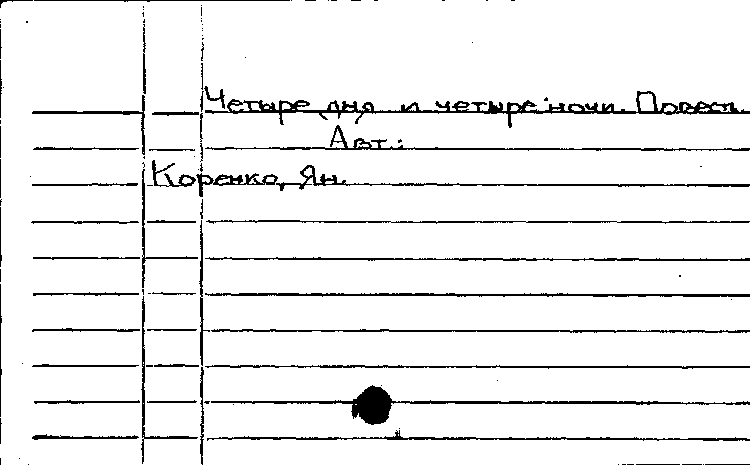 Четыре дня и четыре ночи. Повесть.
Авт.:
Коренко, Ян.